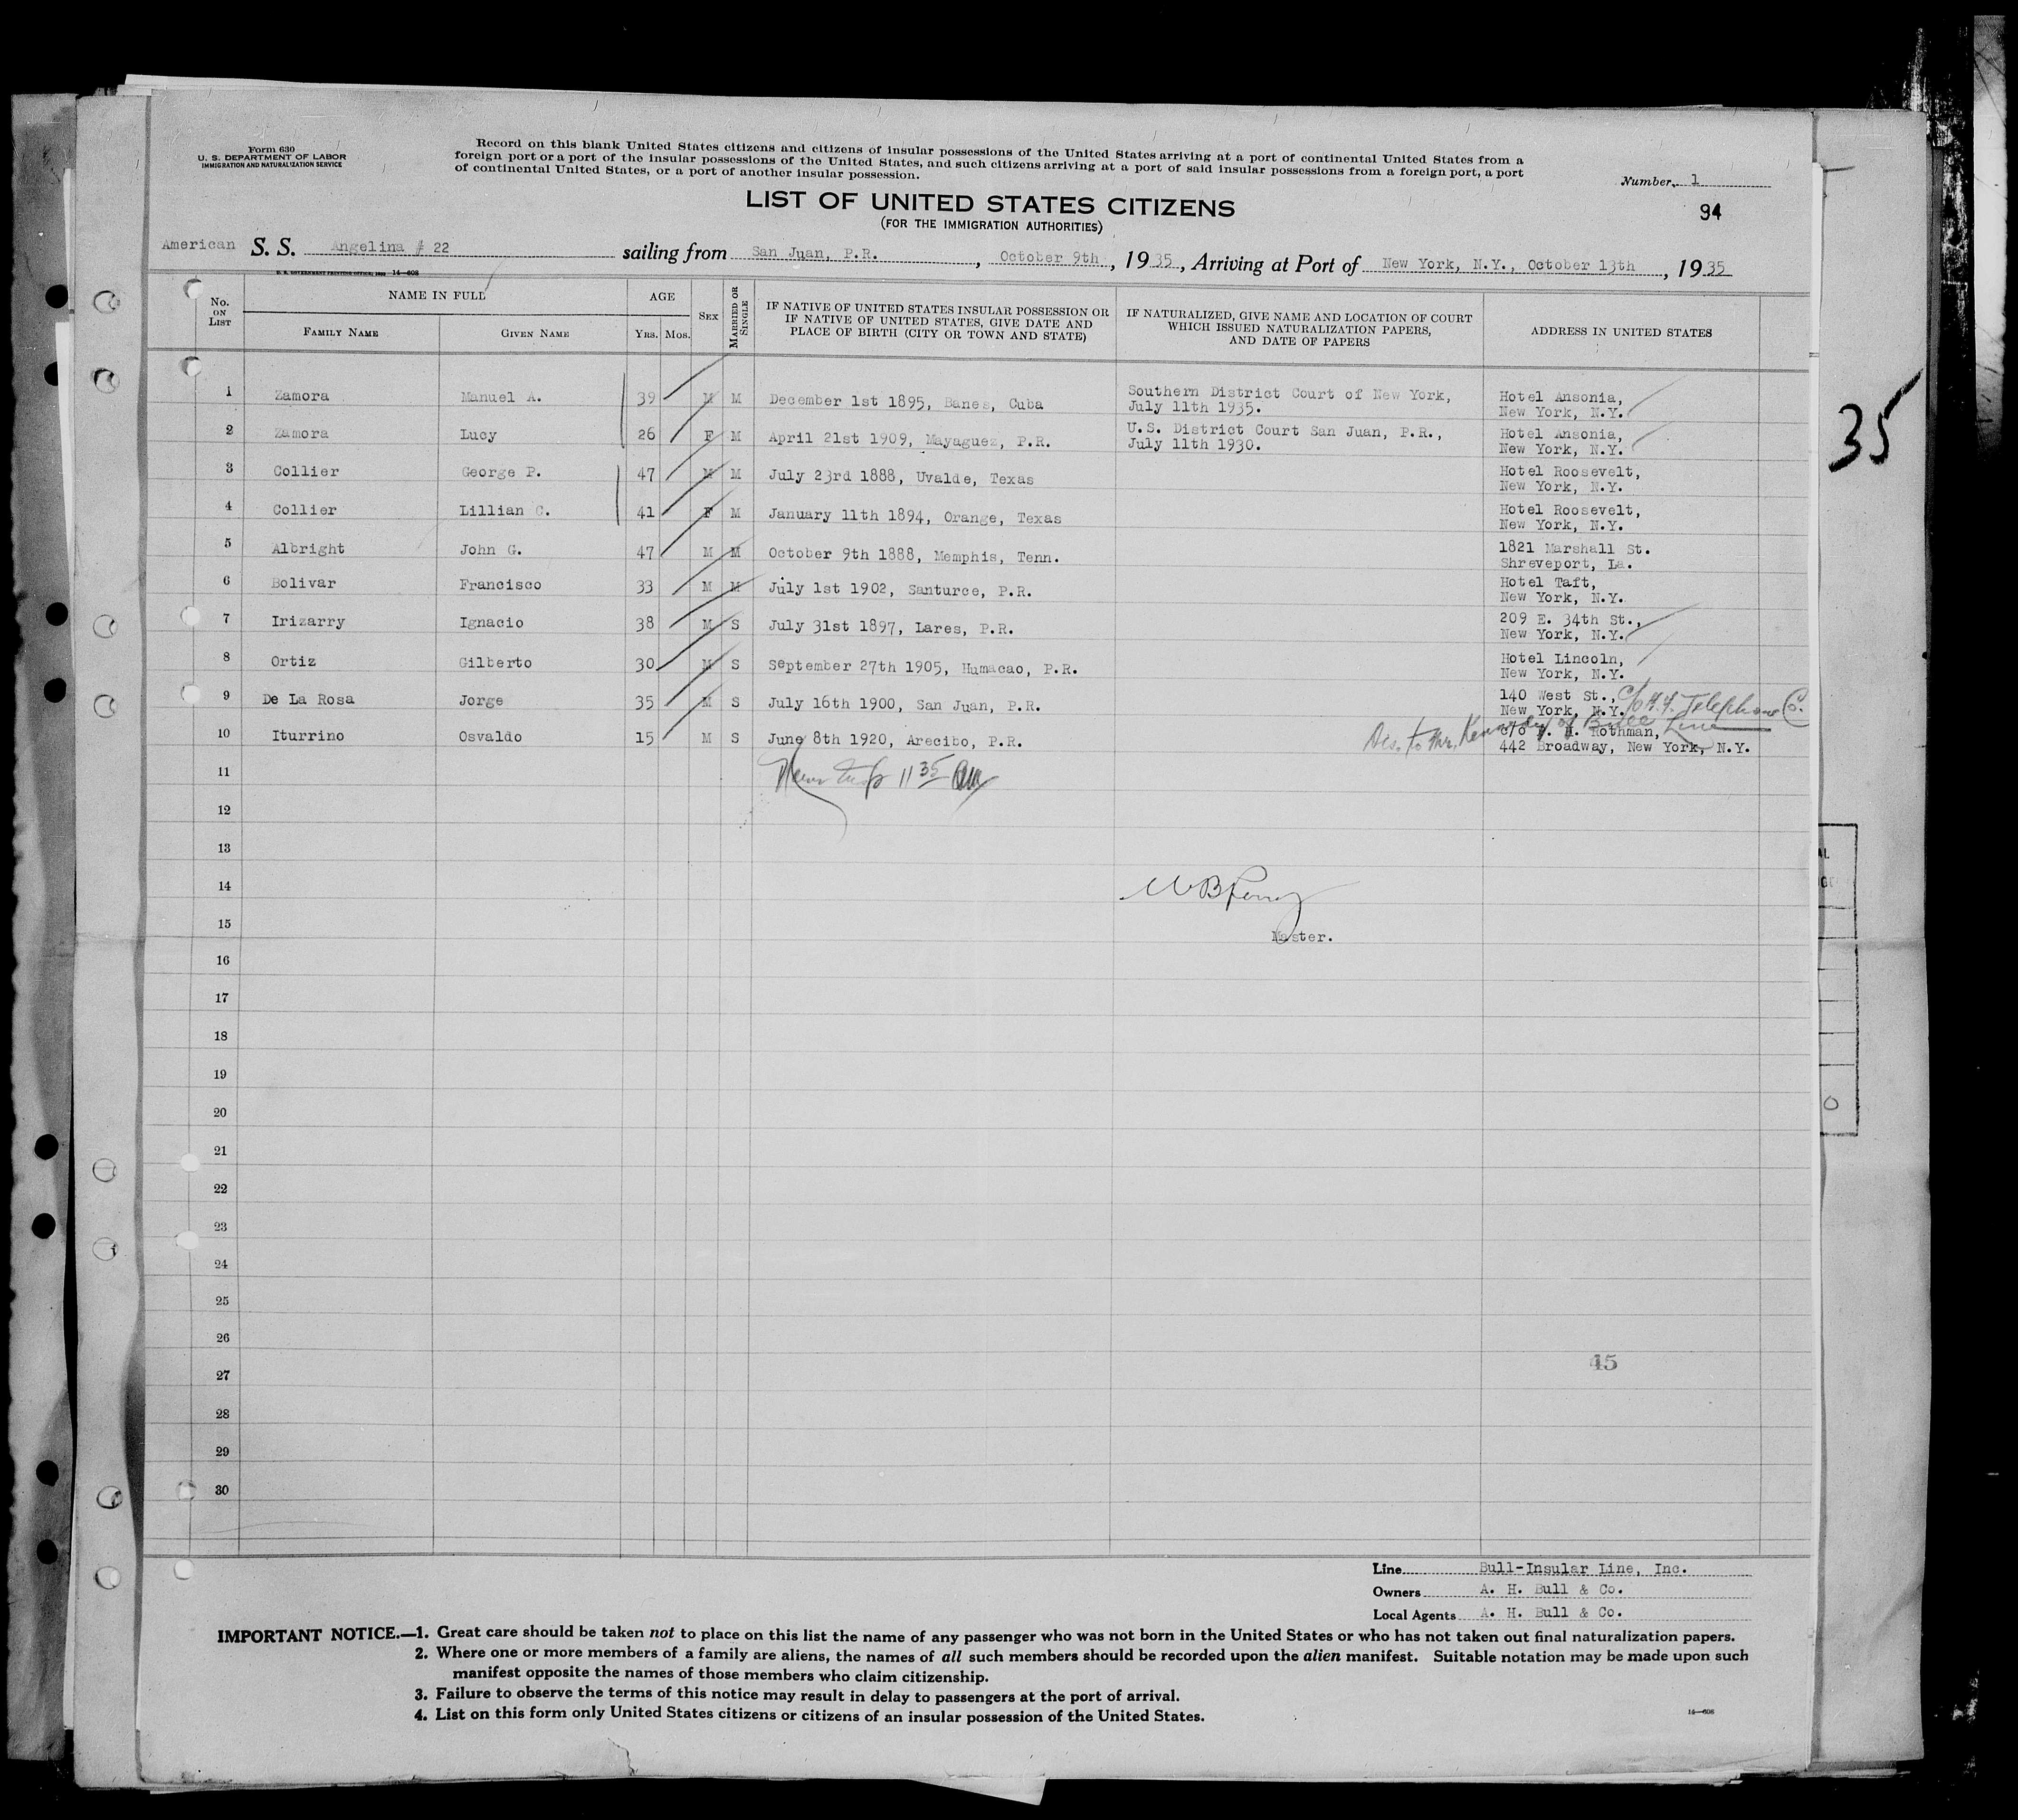 Form 630
U. S. DEPARTMENT OF LABOR
IMMIGRATION AND NATURALIZATION SERVICE
Record on this blank United States citizens and citizens of insular possessions of the United States arriving at a port of continental United States from a
foreign port or a port of the insular possessions of the United States, and such citizens arriving at a port of said insular possessions from a foreign port, a port
of continental United States, or a port of another insular possession.
Number 1
LIST OF UNITED STATES CITIZENS
94
(FOR THE IMMIGRATION AUTHORITIES)
American S. S. Angelina # 22 sailing from San Juan, P.R. , October 9th , 1935, Arriving at Port of New York, N.Y., October 13th , 1935
U. S. GOVERNMENT PRINTING OFFICE: 14—608
No. ON LIST
NAME IN FULL
FAMILY NAME
GIVEN NAME
AGE
YRS. MOS.
SEX
MARRIED OR SINGLE
IF NATIVE OF UNITED STATES INSULAR POSSESSION OR
IF NATIVE OF UNITED STATES, GIVE DATE AND
PLACE OF BIRTH (CITY OR TOWN AND STATE)
IF NATURALIZED, GIVE NAME AND LOCATION OF COURT
WHICH ISSUED NATURALIZATION PAPERS,
AND DATE OF PAPERS
ADDRESS IN UNITED STATES
1 Zamora Manuel A. 39 M M December 1st 1895, Banes, Cuba Southern District Court of New York, Hotel Ansonia,
July 11th 1935. New York, N.Y.
2 Zamora Lucy 26 F M April 21st 1909, Mayaguez, P.R. U.S. District Court San Juan, P.R., Hotel Ansonia,
July 11th 1930. New York, N.Y.
3 Collier George P. 47 M M July 23rd 1888, Uvalde, Texas Hotel Roosevelt,
New York, N.Y.
4 Collier Lillian C. 41 F M January 11th 1894, Orange, Texas Hotel Roosevelt,
New York, N.Y.
5 Albright John G. 47 M M October 9th 1888, Memphis, Tenn. 1821 Marshall St.
Shreveport, La.
6 Bolivar Francisco 33 M M July 1st 1902, Santurce, P.R. Hotel Taft,
New York, N.Y.
7 Irizarry Ignacio 38 M S July 31st 1897, Lares, P.R. 209 E. 34th St.,
New York, N.Y.
8 Ortiz Gilberto 30 M S September 27th 1905, Humacao, P.R. Hotel Lincoln,
New York, N.Y.
9 De La Rosa Jorge 35 M S July 16th 1900, San Juan, P.R. 140 West St., c/o N.Y. Telephone Co.
New York, N.Y.
Dis. to Mr. Kennedy of Bull Line
10 Iturrino Osvaldo 15 M S June 8th 1920, Arecibo, P.R. c/o H. Rothman,
442 Broadway, New York, N.Y.
11
11 35 AM
12
13
14
15
Master.
16
17
18
19
20
21
22
23
24
25
26
45
27
28
29
30
Line Bull-Insular Line, Inc.
Owners A. H. Bull & Co.
Local Agents A. H. Bull & Co.
IMPORTANT NOTICE.—1. Great care should be taken not to place on this list the name of any passenger who was not born in the United States or who has not taken out final naturalization papers.
2. Where one or more members of a family are aliens, the names of all such members should be recorded upon the alien manifest. Suitable notation may be made upon such
manifest opposite the names of those members who claim citizenship.
3. Failure to observe the terms of this notice may result in delay to passengers at the port of arrival.
4. List on this form only United States citizens or citizens of an insular possession of the United States.
14—608
35